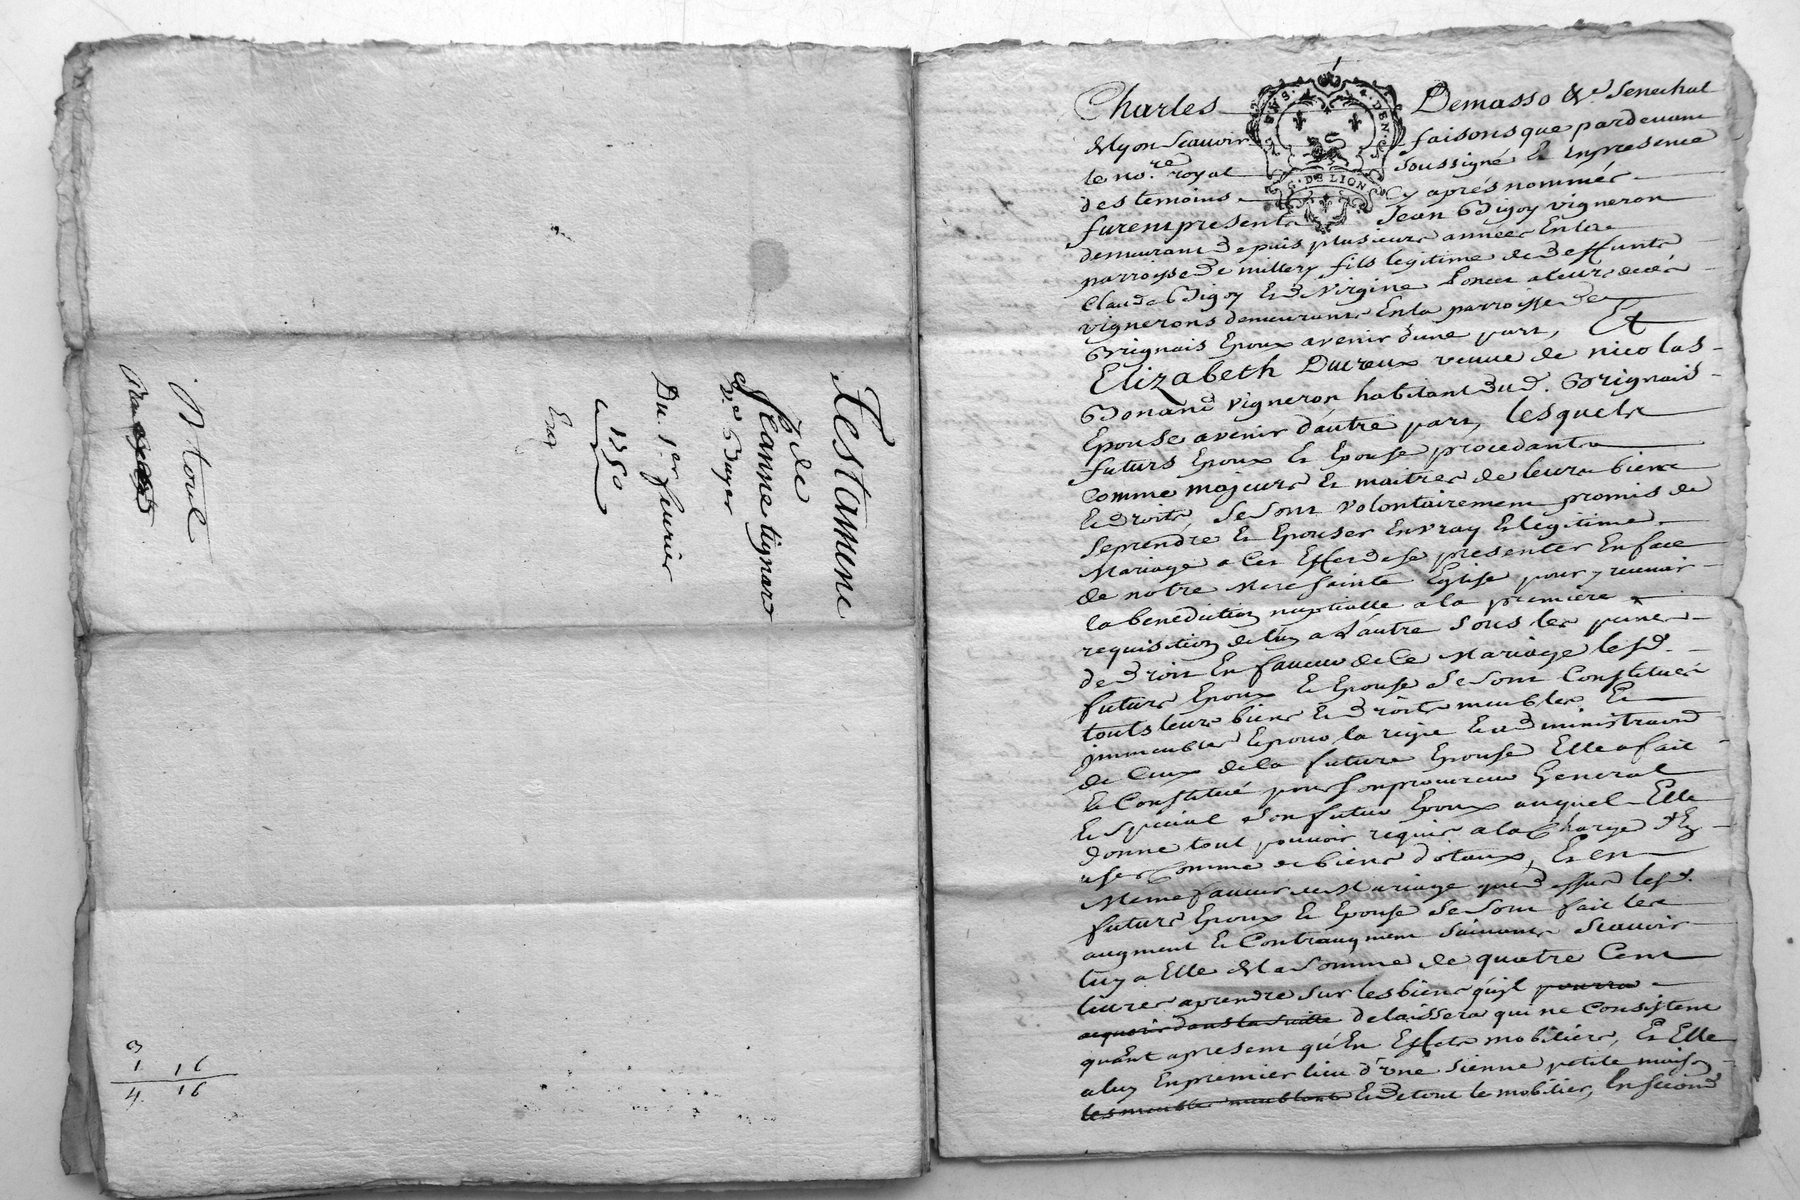 Testament
de
Jeanne tignar
ve Guyer
Du 1er feurier
1750
N tout
3
1 16
4 16
4. DEN.
G. DE LION
Charles Demasso &c. Senechal
de lyon Scauoir faisons que pardeuant
le nore. royal Soussigné Et Enpresence
des temoins Cy aprés nommés
furent presents Jean Grigoy vigneron
demeurant depuis plusieurs années En la
parroisse de millery fils legitime de deffunts
Claude Grigoy Et Virgine Poncet a leurs deces
vignerons demeurants En la parroisse de
Grignais Epoux avenir d'une part, Et
Elizabeth Ducreux veuue de nicolas
Gonand vigneron habitant dud. Grignais
Epouse avenir d'autre part, lesquels
futurs Epoux Et Epouse procedants
Comme majeurs Et maitres de leurs biens
Et droits, se sont volontairement promis de
se prendre Et Epouser En vray Et legitime
Mariage a Cet Effet de se presenter En face
de notre Mere Sainte Eglise pour y receuoir
la benediction nuptialle a la premiere
requisition de l'un a L'autre sous les peines
de droit En faueur de Ce Mariage lesd.
futurs Epoux Et Epouse se sont Constitués
touts leurs biens Et droits meubles Et
immeubles Et pour la regie Et administraon
de Ceux de la future Epouse Elle a fait
Et Constitué pour son procureur General
Et special son futur Epoux auquel Elle
donne tout pouvoir requis a la Charge d'En
user Comme de biens dotaux, Et En
Meme faueur de Mariage que dessus lesd.
futurs Epoux Et Epouse se sont fait les
augment Et Contraugment suiuants scauoir
luy a Elle de la Somme de quatre Cent
liures aprendre sur les biens qu'il pourra
acquerir dans la suitte delaissera qui ne Consistent
quant apresent qu'En Effets mobiliers, Et Elle
a luy En premier lieu d'une sienne petite maison
les meubles meublants Et de tout le mobilier, En second